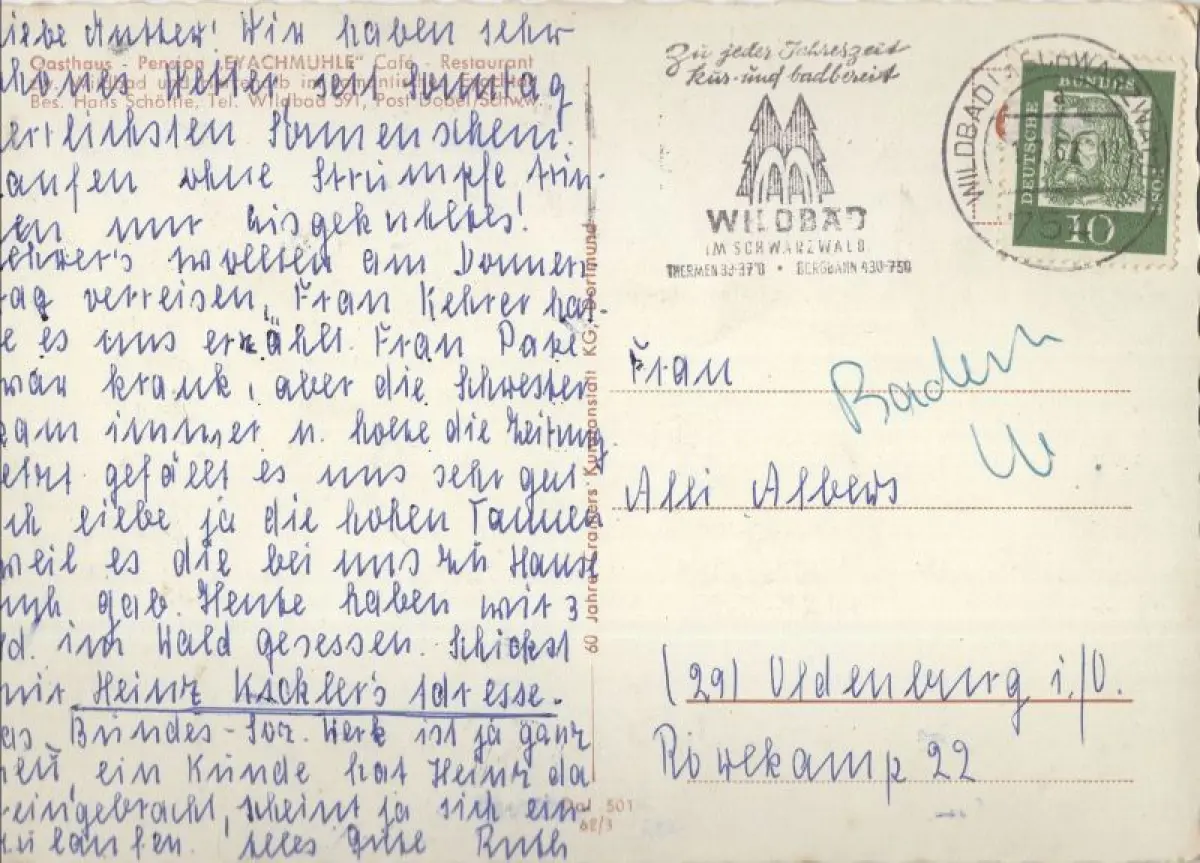 liebe Mutter! Wir haben sehr
schönes Wetter seit Sonntag
herrlichsten Sonnenschein.
laufen ohne Strümpfe, trin-
ken nur eisgekühltes!
Kehrer's wollten am Donners
tag verreisen, Frau Kehrer hat-
te es uns erzählt. Frau
war krank, aber die Schwester
kam immer u. holte die Zeitung.
jetzt gefällt es uns sehr gut
ich liebe ja die hohen Tannen
weil es die bei uns zu Hause
auch gab. Heute haben wir 3
Std. im Wald gesessen. Schickst
mir Heinz Kickler's Adresse.
das Bundes-Soz. Werk ist ja ganz
neu, ein Kunde hat Heinz da
reingebracht, scheint ja sich ein
zulaufen. Alles Gute Ruth
Gasthaus - Pension „EYACHMÜHLE" Café - Restaurant
Bes. Hans Schöthe, Tel. Wildbad 591, Post Dobel/Schw.
60 Jahre Krankers Kunstanstalt KG, Dortmund
501
62/3
Zu jeder Jahreszeit
kur- und badbereit
WILDBAD
IM SCHWARZWALD
THERMEN 33-37°C • BERGBAHN 430-750
WILDBAD (SCHWARZWALD)
754
DEUTSCHE BUNDESPOST
10
Baden
Frau
Alli Albers
(29) Oldenburg i./O.
Röwekamp 22